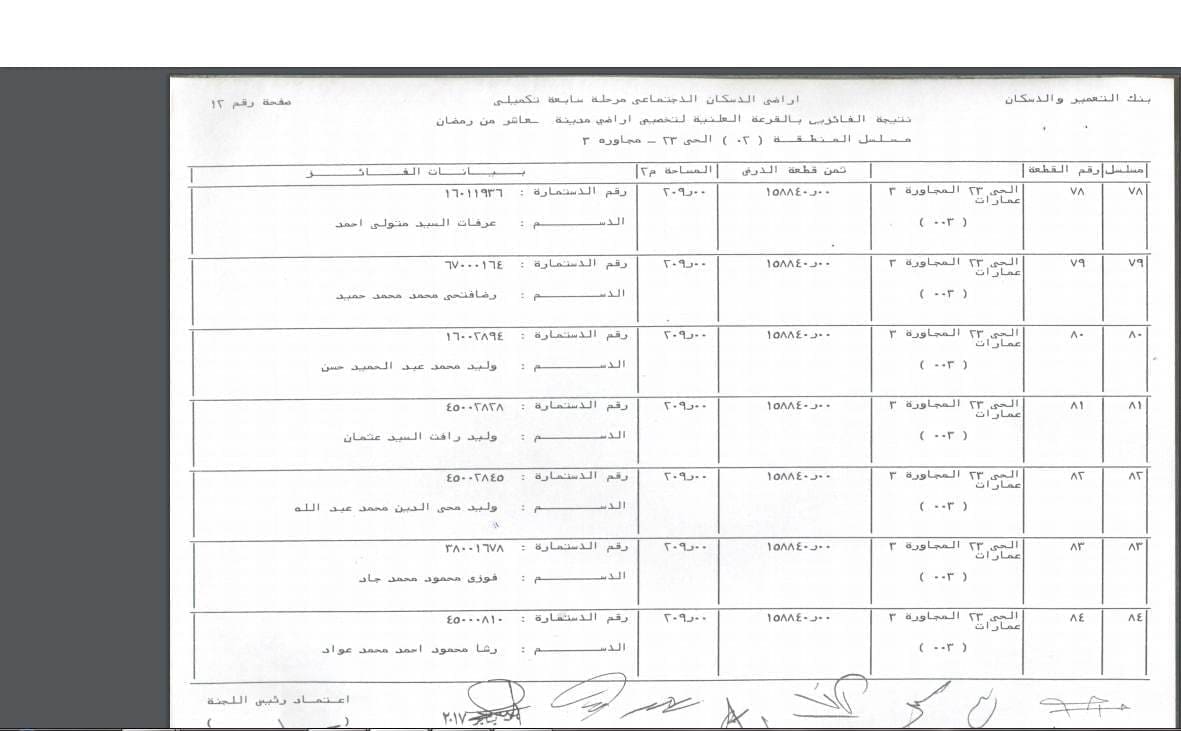 بنك التعمير والاسكان
اراضى الاسكان الاجتماعى مرحلة سابعة تكميلى
صفحة رقم ١٢
نتيجة الفائزين بالقرعة العلنية لتخصيص اراضى مدينة عاشر من رمضان
مسلسل المنطقة ( ٠٢ ) الحى ٢٣ - مجاوره ٣
مسلسل رقم القطعة ثمن قطعة الارض المساحة م٢ بيانات الفائز
٧٨ ٧٨ الحى ٢٣ المجاورة ٣ ١٥٨٨٤٠ر٠٠ ٢٠٩ر٠٠ رقم الاستمارة : ١٦٠١١٩٣٦
عمارات
( ٠٠٣ ) الاسم : عرفات السيد متولى احمد
٧٩ ٧٩ الحى ٢٣ المجاورة ٣ ١٥٨٨٤٠ر٠٠ ٢٠٩ر٠٠ رقم الاستمارة : ٦٧٠٠٠١٦٤
عمارات
( ٠٠٣ ) الاسم : رضافتحى محمد محمد حميد
٨٠ ٨٠ الحى ٢٣ المجاورة ٣ ١٥٨٨٤٠ر٠٠ ٢٠٩ر٠٠ رقم الاستمارة : ١٦٠٠٢٨٩٤
عمارات
( ٠٠٣ ) الاسم : وليد محمد عبد الحميد حسن
٨١ ٨١ الحى ٢٣ المجاورة ٣ ١٥٨٨٤٠ر٠٠ ٢٠٩ر٠٠ رقم الاستمارة : ٤٥٠٠٢٨٢٨
عمارات
( ٠٠٣ ) الاسم : وليد رافت السيد عثمان
٨٢ ٨٢ الحى ٢٣ المجاورة ٣ ١٥٨٨٤٠ر٠٠ ٢٠٩ر٠٠ رقم الاستمارة : ٤٥٠٠٢٨٤٥
عمارات
( ٠٠٣ ) الاسم : وليد محى الدين محمد عبد الله
٨٣ ٨٣ الحى ٢٣ المجاورة ٣ ١٥٨٨٤٠ر٠٠ ٢٠٩ر٠٠ رقم الاستمارة : ٣٨٠٠١٦٧٨
عمارات
( ٠٠٣ ) الاسم : فوزى محمود محمد جاد
٨٤ ٨٤ الحى ٢٣ المجاورة ٣ ١٥٨٨٤٠ر٠٠ ٢٠٩ر٠٠ رقم الاستمارة : ٤٥٠٠٠٨١٠
عمارات
( ٠٠٣ ) الاسم : رشا محمود احمد محمد عواد
اعتماد رئيس اللجنة
٢٠١٧